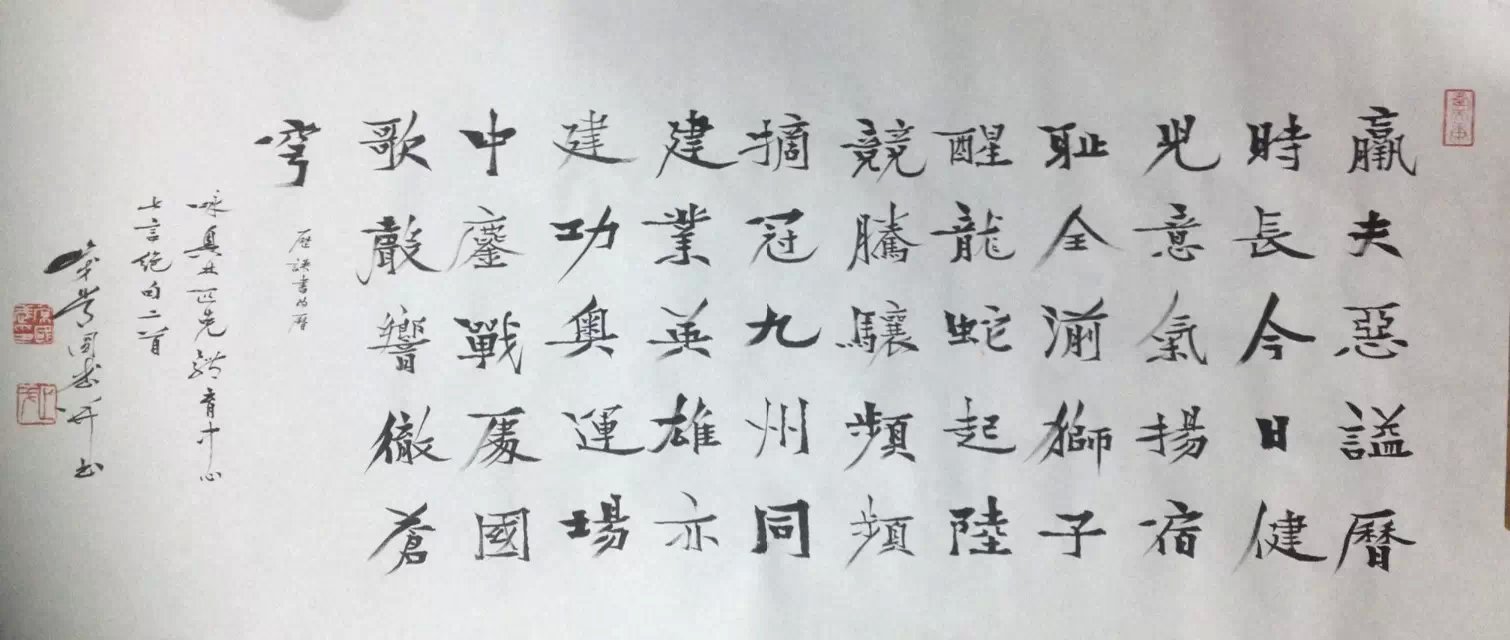 羸夫惡謚曆
時長今日健
兒意氣揚宿
耻全湔獅子
醒龍蛇起陸
競騰驤頻頻
摘冠九州同
建業英雄亦
建功奧運場
中鏖戰處國
歌聲響徹蒼
穹
歷誤書為曆
咏奧林匹克體育中心
七言絶句二首